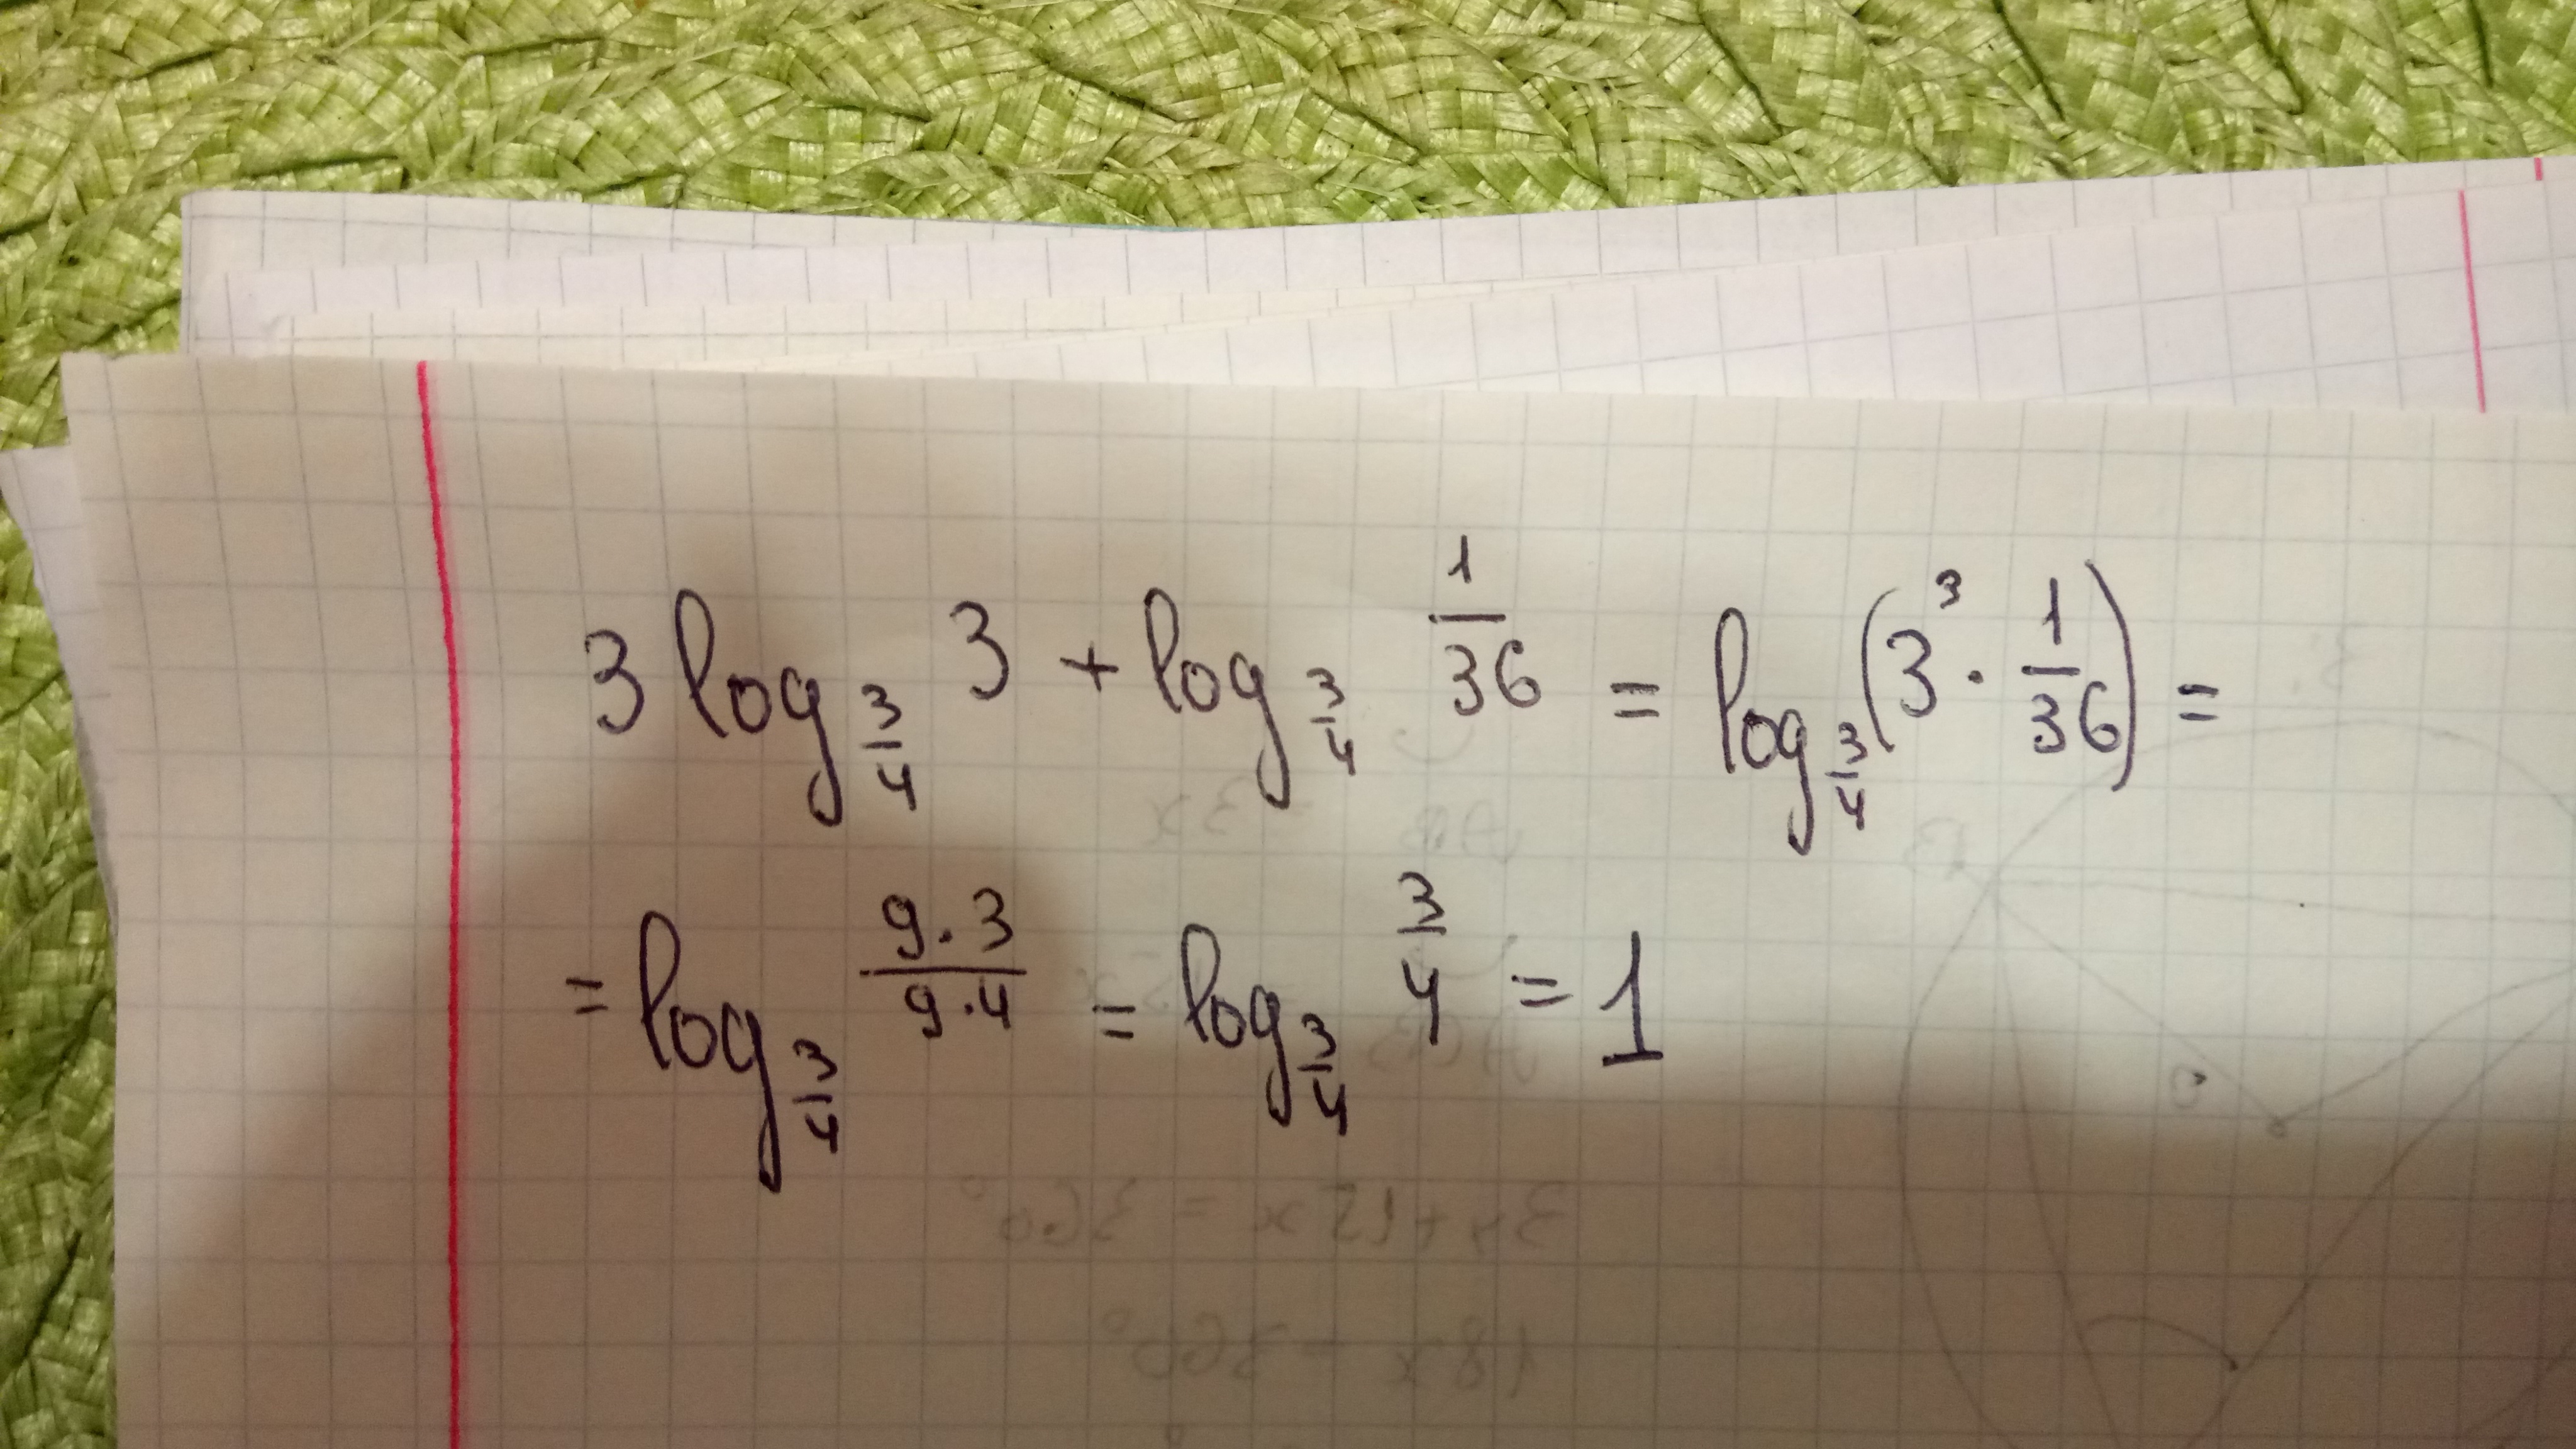 3 log_{3/4} 3 + log_{3/4} 1/36 = log_{3/4} (3^3 · 1/36) =
= log_{3/4} (9·3)/(9·4) = log_{3/4} 3/4 = 1